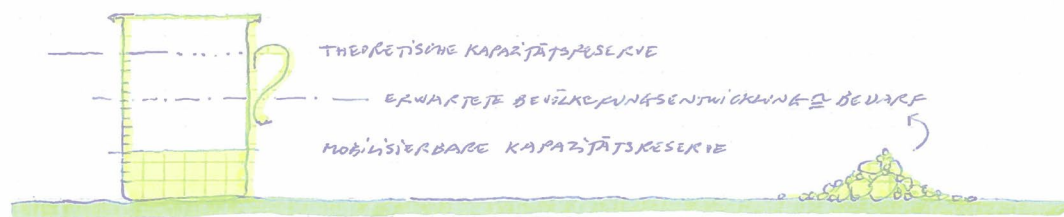 THEORETISCHE KAPAZITÄTSRESERVE
ERWARTETE BEVÖLKERUNGSENTWICKLUNG ≙ BEDARF
MOBILISIERBARE KAPAZITÄTSRESERVE